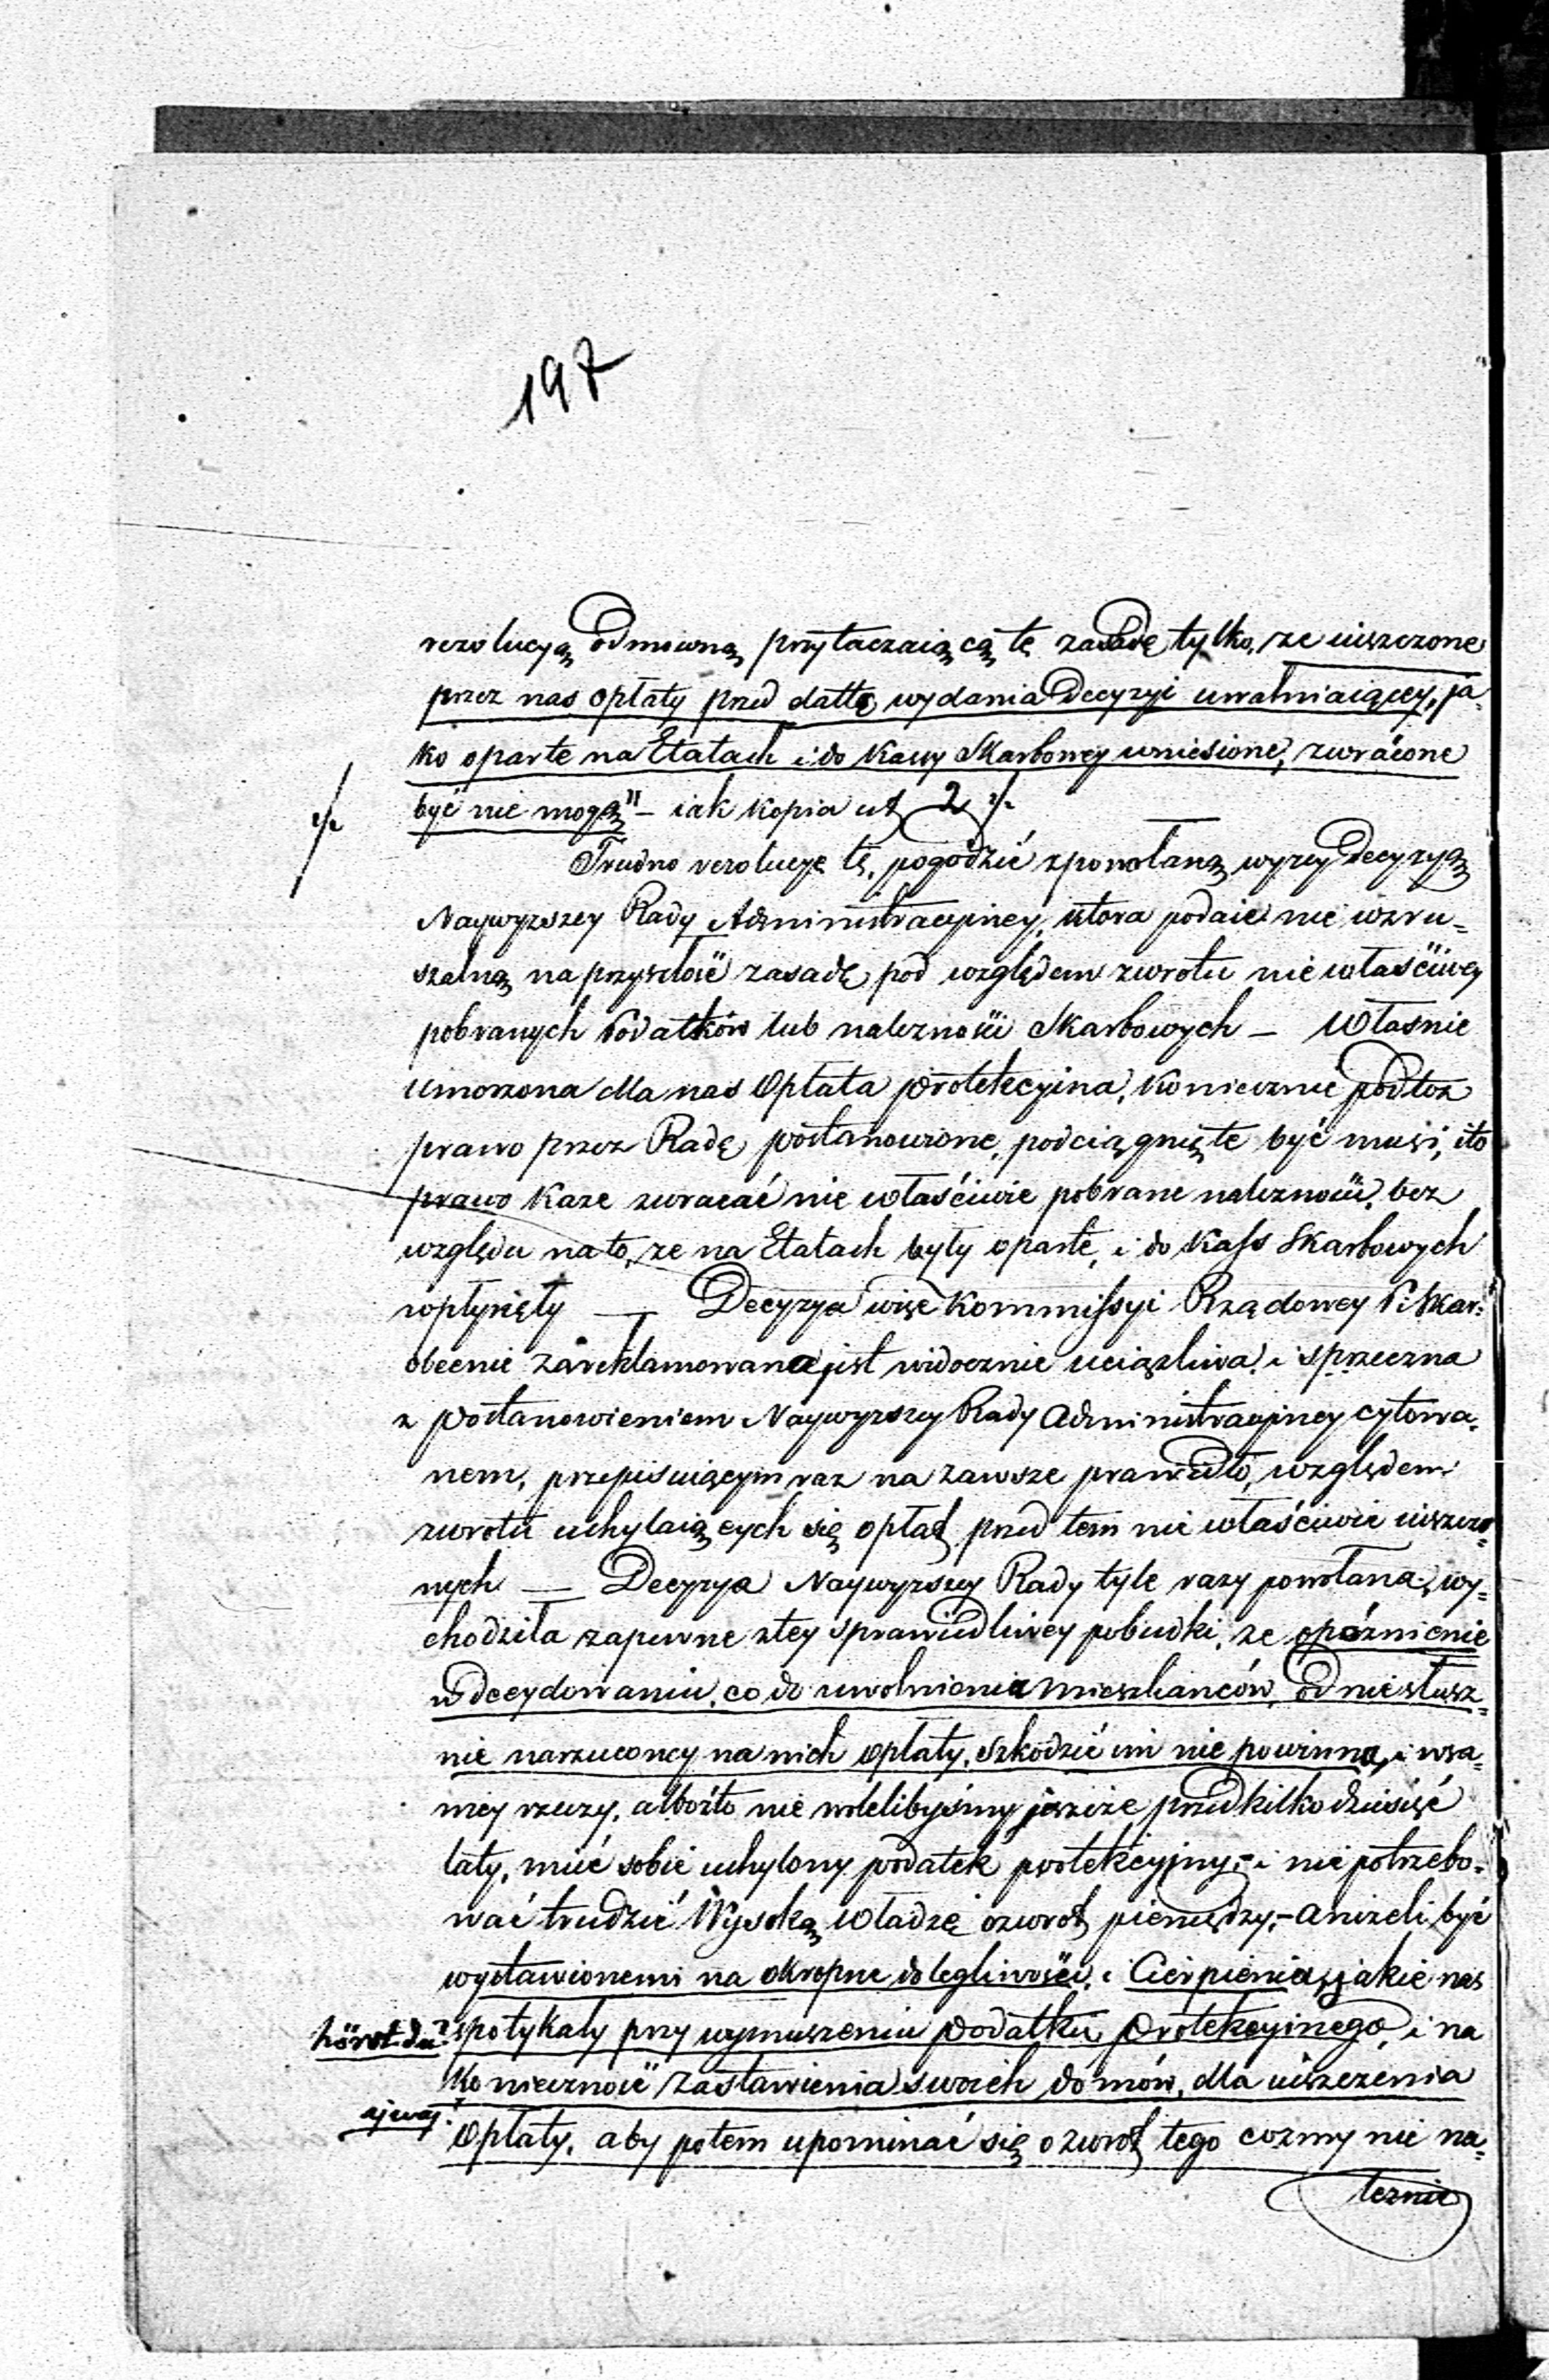 197
rezolucyą odmowną przytaczaiącą tę zasadę tylko, że uiszczone
przez nas opłaty przed dattą wydania Decyzyi uwalniaiącey, ja-
ko oparte na Etatach i do Kassy Skarbowey wniesione, zwrócone
być nie mogą" – iak kopia ut 2 ·/.
·/.
Trudno rezolucyę tę, pogodzić z powołaną wyzey Decyzyą
Naywyższey Rady Administracyiney, która podaie nie wzru=
szalną na przyszłość zasadę pod względem zwrotu nie właściwey
pobranych Podatków lub należności Skarbowych – Własnie
umorzona dla nas Opłata protekcyina, koniecznie pod toż
prawo przez Radę postanowione, podciągnięte być musi, i to
prawo każe zwracać nie właściwie pobrane należności, bez
względu na to, ze na Etatach były oparte, i do Kass Skarbowych
wpłynęły — Decyzya więc Kommissyi Rządowey P. Skar:
obecnie zareklamowana jest widocznie uciążliwa i sprzeczna
z postanowieniem Naywyższey Rady Administracyiney cytowa-
nem, przepisuiącym raz na zawsze prawidło, względem
zwrotu uchylaiących się opłat przed tem nie właściwie uiszczo=
nych — Decyzya Naywyższey Rady tyle razy powołana, wy=
chodziła zapewne z tey sprawiedliwey pobudki, ze opóznienie
w decydowaniu, co do uwolnienia Mieszkanców, od niesłusz=
nie narzuconey na nich opłaty, szkodzić im nie powinno, i w sa=
mey rzeczy, alboż to nie wolelibyśmy jeszcze przed kilkodziesięć
laty, mieć sobie uchylony podatek protekcyjny,– i nie potrzebo-
wać trudzić Wysoką Władzę o zwrot pieniędzy,– aniżeli być
wystawionemi na okropne dolegliwości, i Cierpienia, jakie nas
hörst du? spotykały przy wymuszeniu Podatku Protekcyinego, i na
Konieczność zastawienia swoich domów, dla uiszczenia
ajwaj! Opłaty, aby potem upominać się o zwrot tego cozmy nie na=
leznie